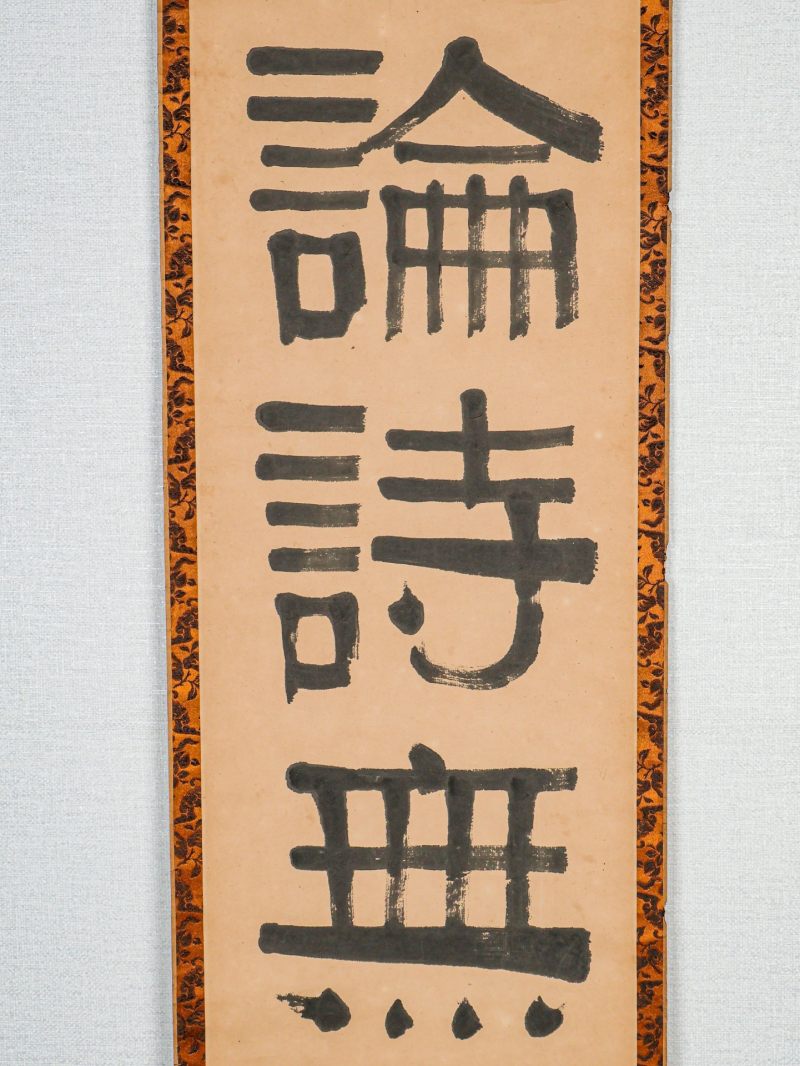 論詩無